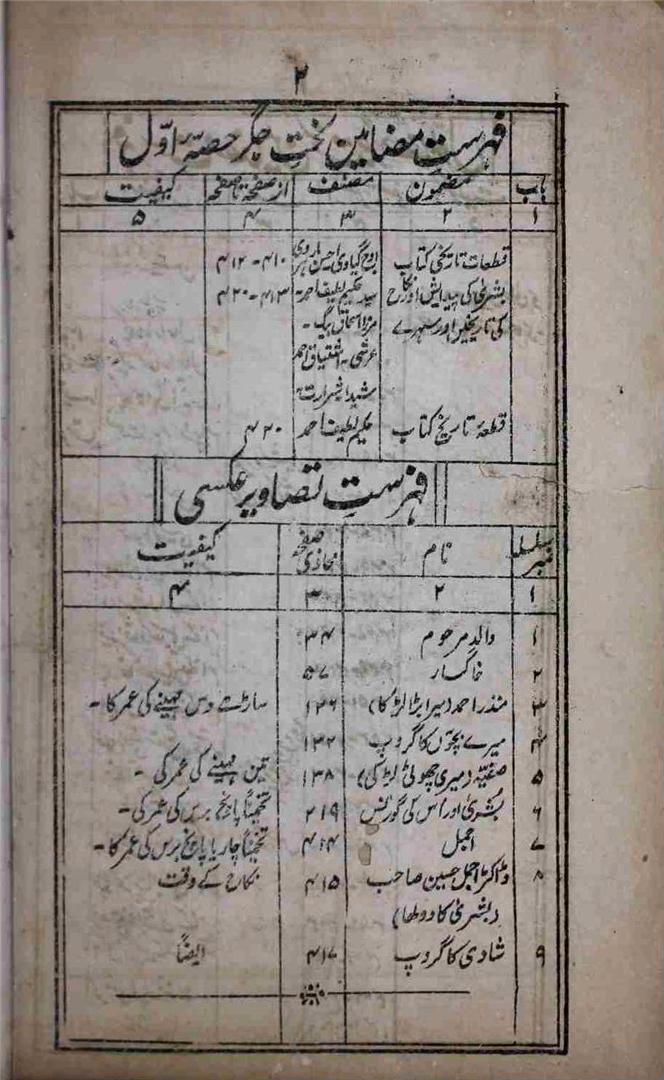 ۲
فہرستِ مضامین لختِ جگر حصّہ اوّل
باب مضمون مصنف از صفحہ تا صفحہ کیفیت
۱ ۲ ۳ ۴ ۵
قطعات تاریخی کتاب اوج گیاوی احسن مارہروی ۴۱۰-۴۱۲
بشریٰ کی پیدایش اور نکاح سید حکیم لطیف احمد- ۴۱۳-۴۲۰
کی تاریخیں اور سہرے مرزا اسحاق بیگ-
عرشی- اشتیاق احمد
شیدا شرارت-
قطعۂ تاریخ کتاب حکیم لطیف احمد ۴۲۰
فہرست تصاویر عکسی
سلسلہ نمبر نام صفحہ محاذی کیفیت
۱ ۲ ۳ ۴
۱ والد مرحوم ۳۴
۲ خاکسار ۵۷
۳ منذر احمد (میرا بڑا لڑکا) ۱۲۶ ساڑھے دس مہینے کی عمر کا-
۴ میرے بچّوں کا گروپ ۱۳۲
۵ صفیّہ (میری چھوٹی لڑکی) ۱۳۸ تین مہینے کی عمر کی-
۶ بشریٰ اور اُس کی گورنس ۲۱۹ تخمیناً پانچ برس کی عمر کی-
۷ اجمل ۴۱۴ تخمیناً چار یا پانچ برس کی عمر کا-
۸ ڈاکٹر اجمل حسین صاحب ۴۱۵ نکاح کے وقت
(بشریٰ کا دولھا)
۹ شادی کا گروپ ۴۱۷ ایضاً